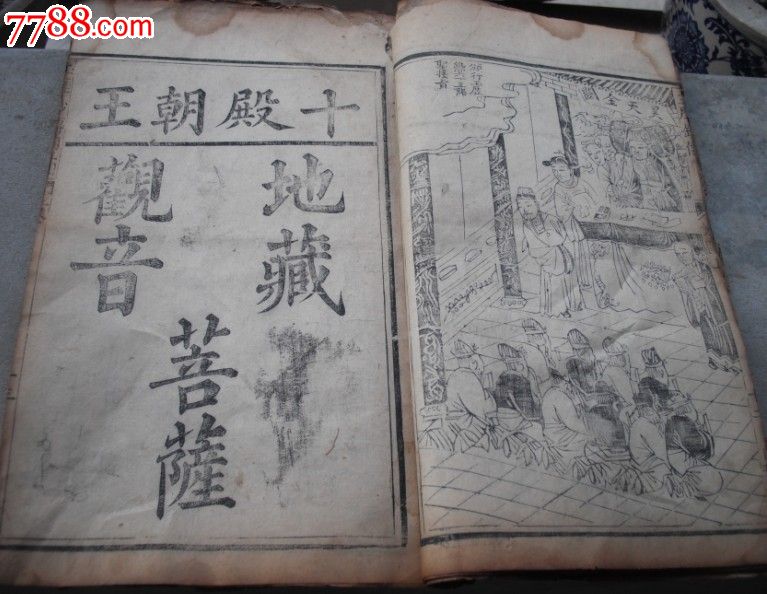 7788.com
十殿朝王
地藏
觀音
菩薩